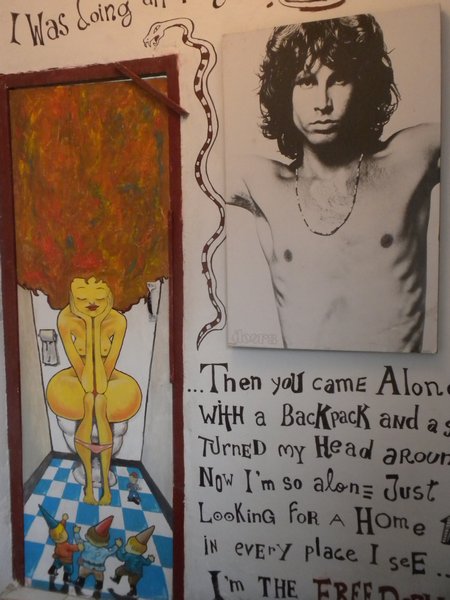 I Was Going
doors
...Then you came
With a Backpack and a
Turned my Head
Now I'm so alone Just
Looking For a Home
in every place I see ..
I'm the